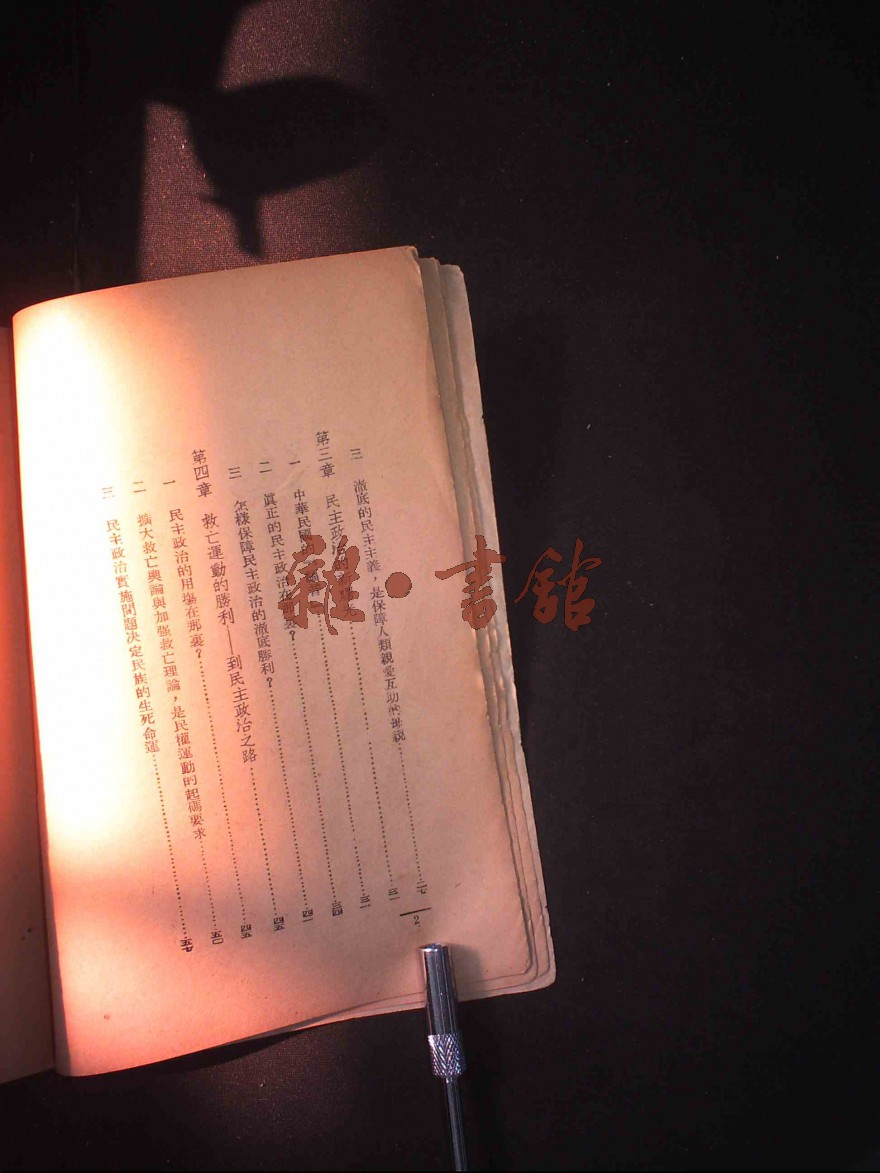 三 澈底的民主主義，是保障人類親愛互助的母親……二七
第三章 民主政治的……三一
一 中華民國……三二
二 眞正的民主政治在那裏？……三四
三 怎樣保障民主政治的澈底勝利？……四一
第四章 救亡運動的勝利——到民主政治之路……四五
一 民主政治的用場在那裏？……四五
二 擴大救亡輿論與加强救亡理論，是民權運動的起碼要求……五〇
三 民主政治實施問題决定民族的生死命運……
2
雜·書館